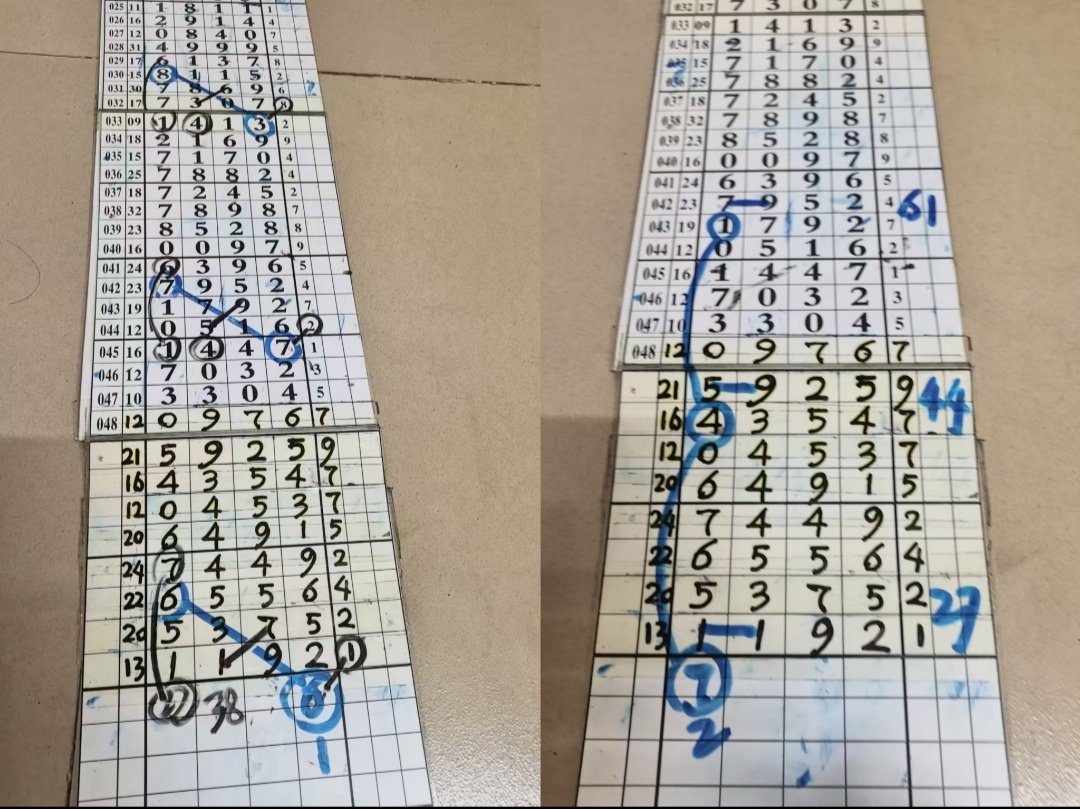 025 11 1 8 1 1 1
026 16 2 9 1 4 4
027 12 0 8 4 0 7
028 31 4 9 9 9 5
029 17 6 1 3 7 8
030 15 8 1 1 5 2
031 30 7 8 6 9 6
032 17 7 3 0 7 8
033 09 1 4 1 3 2
034 18 2 1 6 9 9
035 15 7 1 7 0 4
036 25 7 8 8 2 4
037 18 7 2 4 5 2
038 32 7 8 9 8 7
039 23 8 5 2 8 8
040 16 0 0 9 7 9
041 24 6 3 9 6 5
042 23 7 9 5 2 4
043 19 1 7 9 2 7
044 12 0 5 1 6 2
045 16 1 4 4 7 1
046 12 7 0 3 2 3
047 10 3 3 0 4 5
048 12 0 9 7 6 7
21 5 9 2 5 9
16 4 3 5 4 7
12 0 4 5 3 7
20 6 4 9 1 5
24 7 4 4 9 2
22 6 5 5 6 4
20 5 3 7 5 2
13 1 1 9 2 1
38
1
032 17 7 3 0 7 8
033 09 1 4 1 3 2
034 18 2 1 6 9 9
035 15 7 1 7 0 4
036 25 7 8 8 2 4
037 18 7 2 4 5 2
038 32 7 8 9 8 7
039 23 8 5 2 8 8
040 16 0 0 9 7 9
041 24 6 3 9 6 5
042 23 7 9 5 2 4 61
043 19 1 7 9 2 7
044 12 0 5 1 6 2
045 16 1 4 4 7 1
046 12 7 0 3 2 3
047 10 3 3 0 4 5
048 12 0 9 7 6 7
21 5 9 2 5 9 44
16 4 3 5 4 7
12 0 4 5 3 7
20 6 4 9 1 5
24 7 4 4 9 2
22 6 5 5 6 4
20 5 3 7 5 2 27
13 1 1 9 2 1
7
2